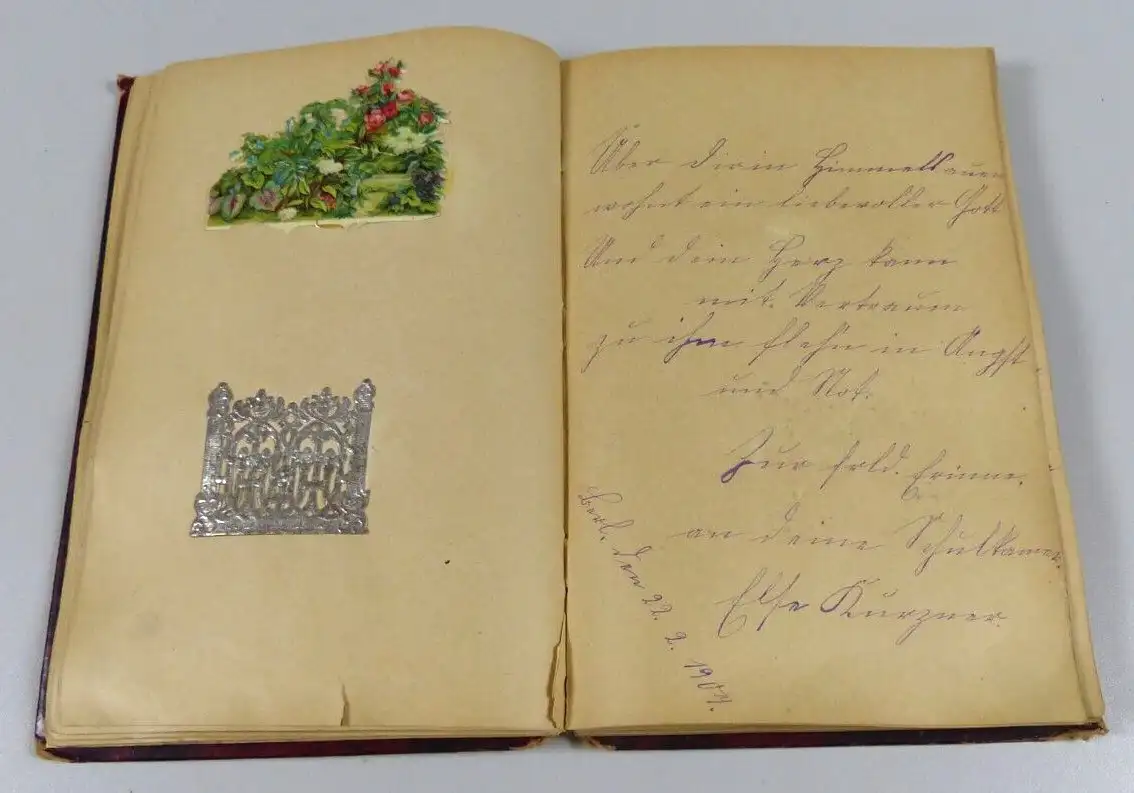 Über dir in Himmelsauen
wohnt ein liebevoller Gott
Und dein Herz kann
mit. Vertraun
zu ihm flehn in Angst
und Not.
Zur frld. Erinne.
an deine Schulkamer.
Else Kurzner.
Berl. den 22. 2. 1904.